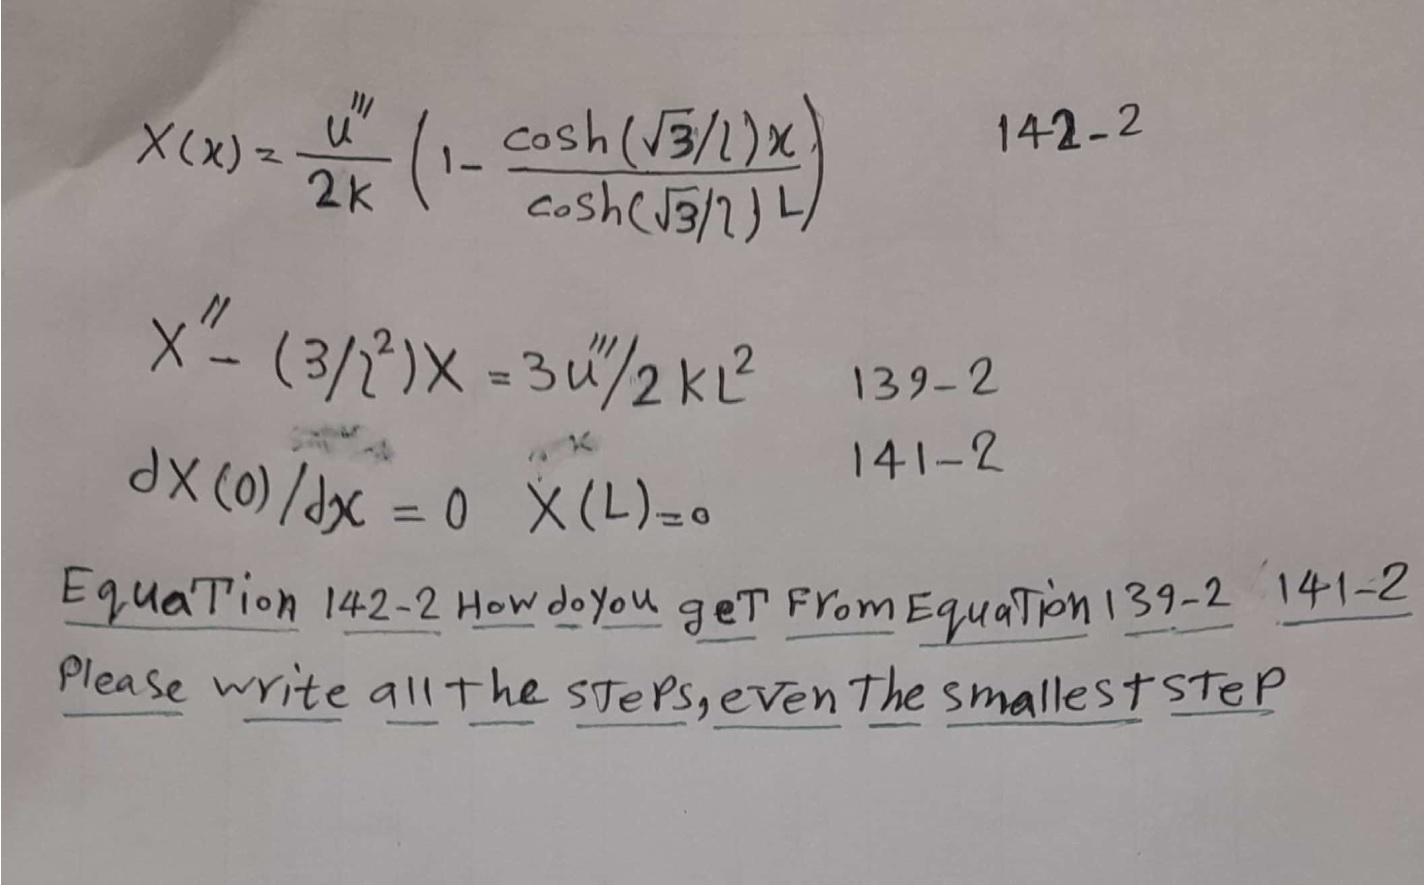 X(x) = u'''/2k (1 - cosh(√3/l)x / cosh(√3/l)L) 142-2
X'' - (3/l²)X = 3u'''/2kL² 139-2
dX(0)/dx = 0 X(L) = 0 141-2
EquaTion 142-2 How do you geT From EquaTion 139-2 141-2
Please write all the sTePs, even The smallest sTeP